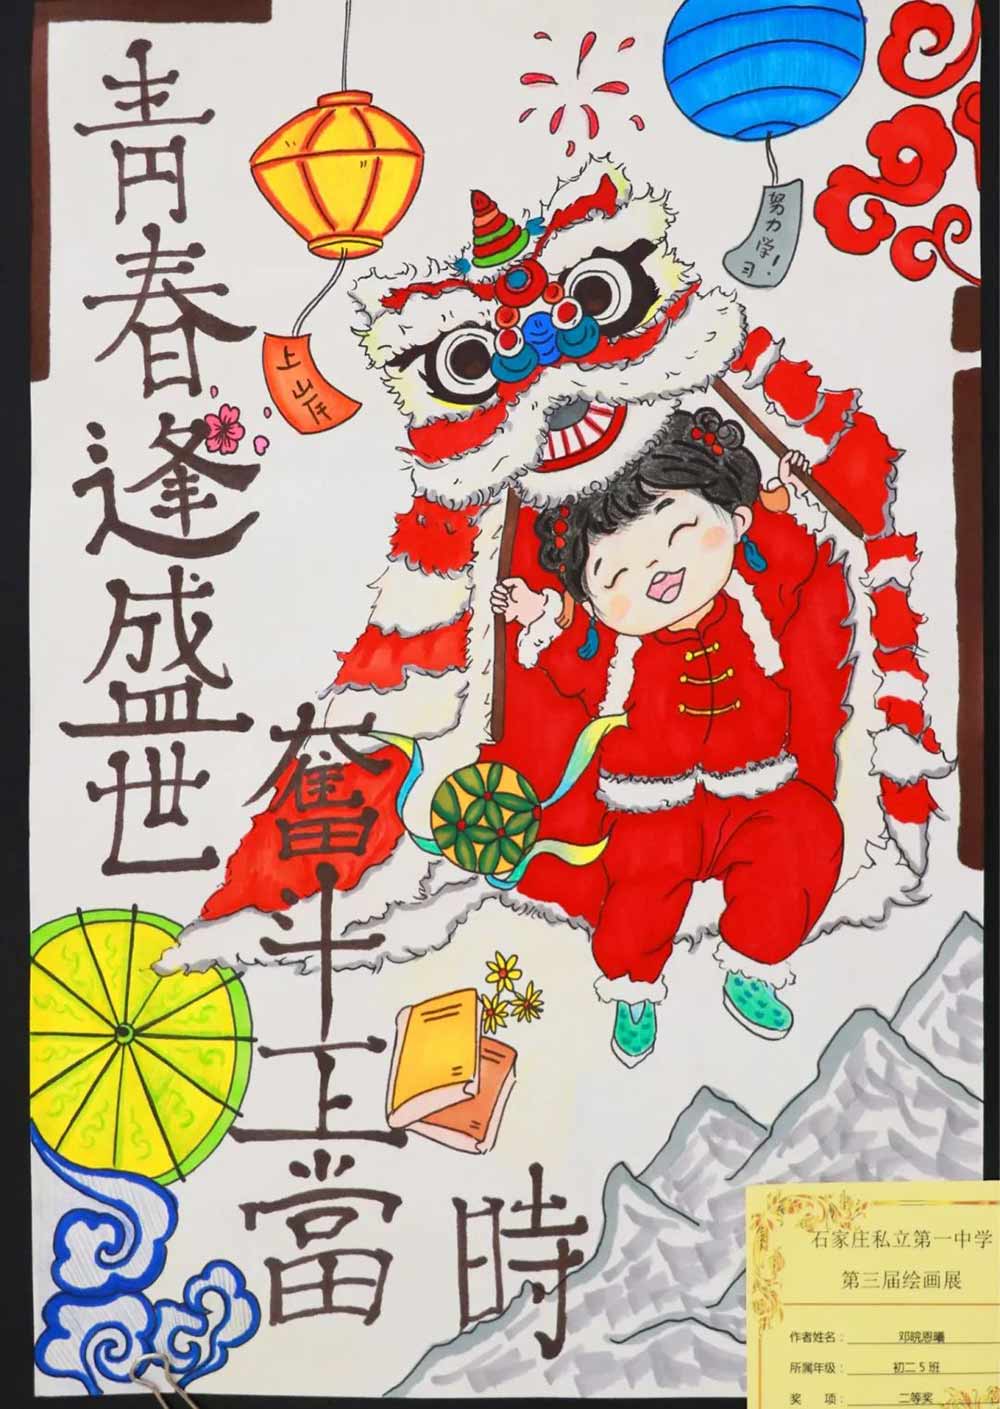 青春逢盛世
奮斗正當時
上岸
努力学习！
石家庄私立第一中学
第三届绘画展
作者姓名：
所属年级：初二5班
奖 项：二等奖